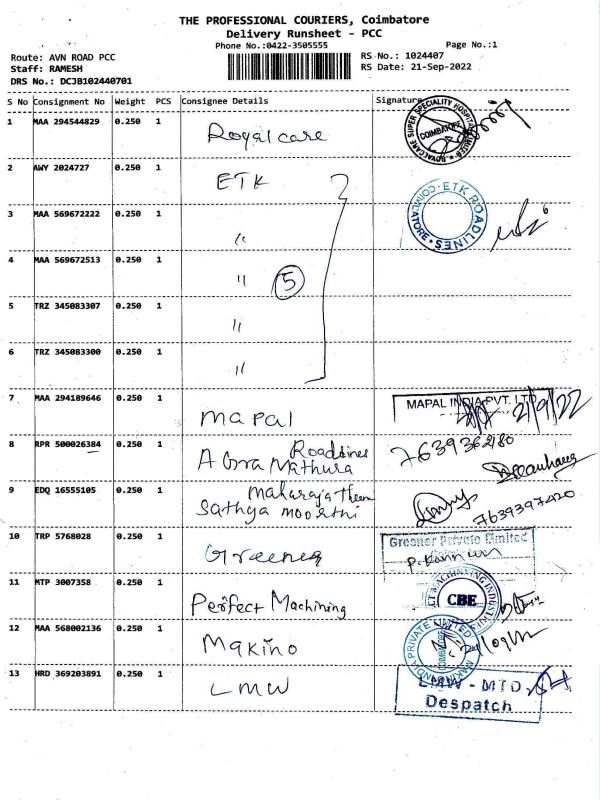 THE PROFESSIONAL COURIERS, Coimbatore
Delivery Runsheet - PCC
Phone No.:0422-3505555
Page No.:1
Route: AVN ROAD PCC
RS No.: 1024407
Staff: RAMESH
RS Date: 21-Sep-2022
DRS No.: DCJB102440701
S No Consignment No Weight PCS Consignee Details Signature
1 MAA 294544829 0.250 1 Royalcare
ROYALCARE SUPER SPECIALITY HOSPITAL LIMITED COIMBATORE
2 AWY 2024727 0.250 1 ETK
ETK ROADLINES COIMBATORE
3 MAA 569672222 0.250 1 "
4 MAA 569672513 0.250 1 " 5
5 TRZ 345083307 0.250 1 "
6 TRZ 345083300 0.250 1 "
7 MAA 294189646 0.250 1 Mapal
MAPAL INDIA PVT. LTD
21/9/22
8 RPR 500026384 0.250 1 Agra Mathura Roadlines
7639362180
9 EDQ 16555105 0.250 1 Sathya moorthi
7639397420
10 TRP 5768028 0.250 1
Greener Private Limited
11 MTP 3007358 0.250 1 Perfect Machining
MACHINING INDUSTRIES
CBE
12 MAA 568002136 0.250 1 Makino
MAKINO INDIA PRIVATE LIMITED COIMBATORE
13 HRD 369203891 0.250 1 LMW
LMW - MTD
Despatch